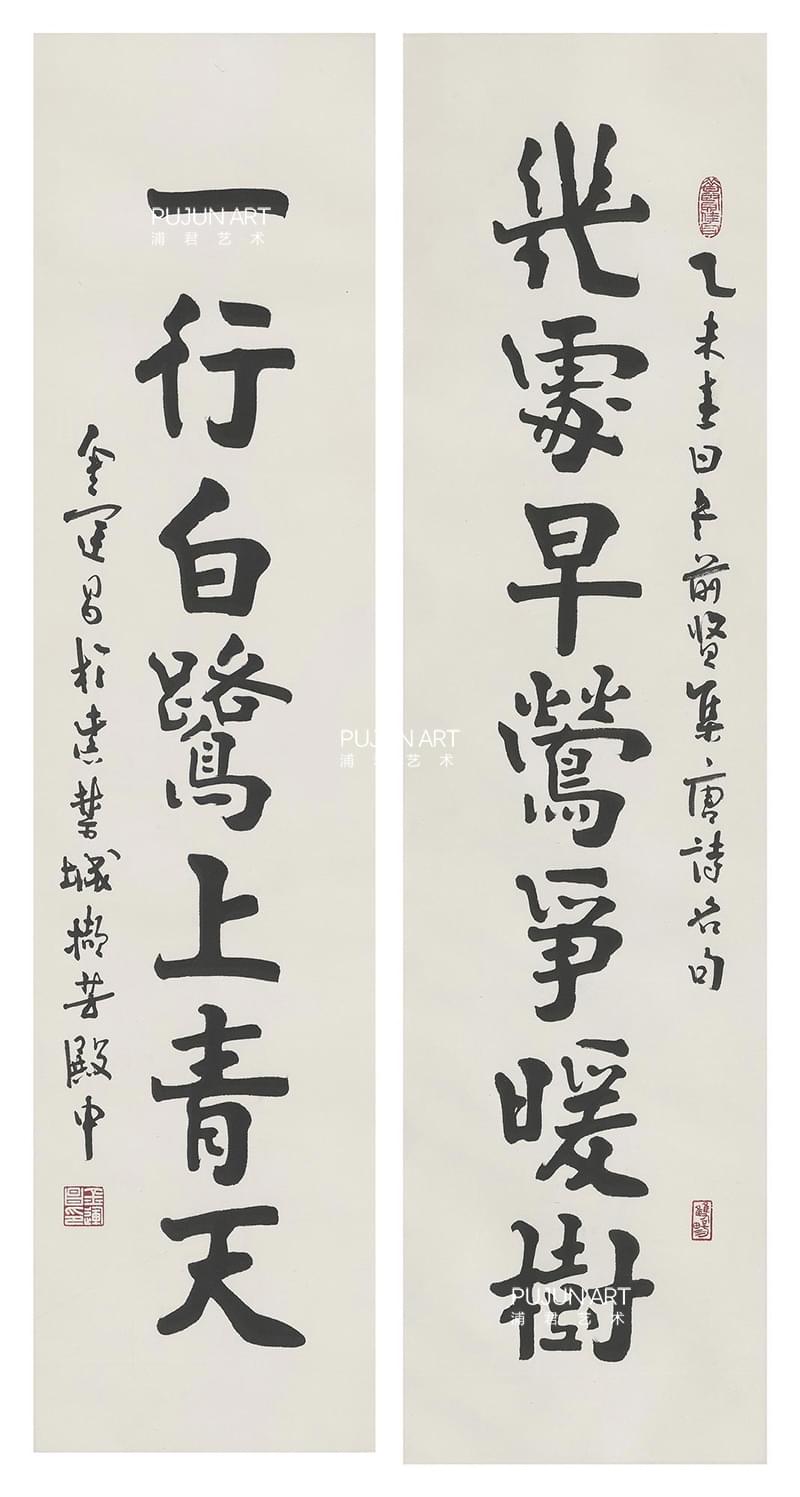 乙未春日书前賢集唐詩名句
幾處早鶯爭暖樹
一行白鷺上青天
金運昌於紫禁城擷芳殿中
金運昌印
PUJUN ART
浦君艺术
PUJUN ART
浦君艺术
PUJUN ART
浦君艺术